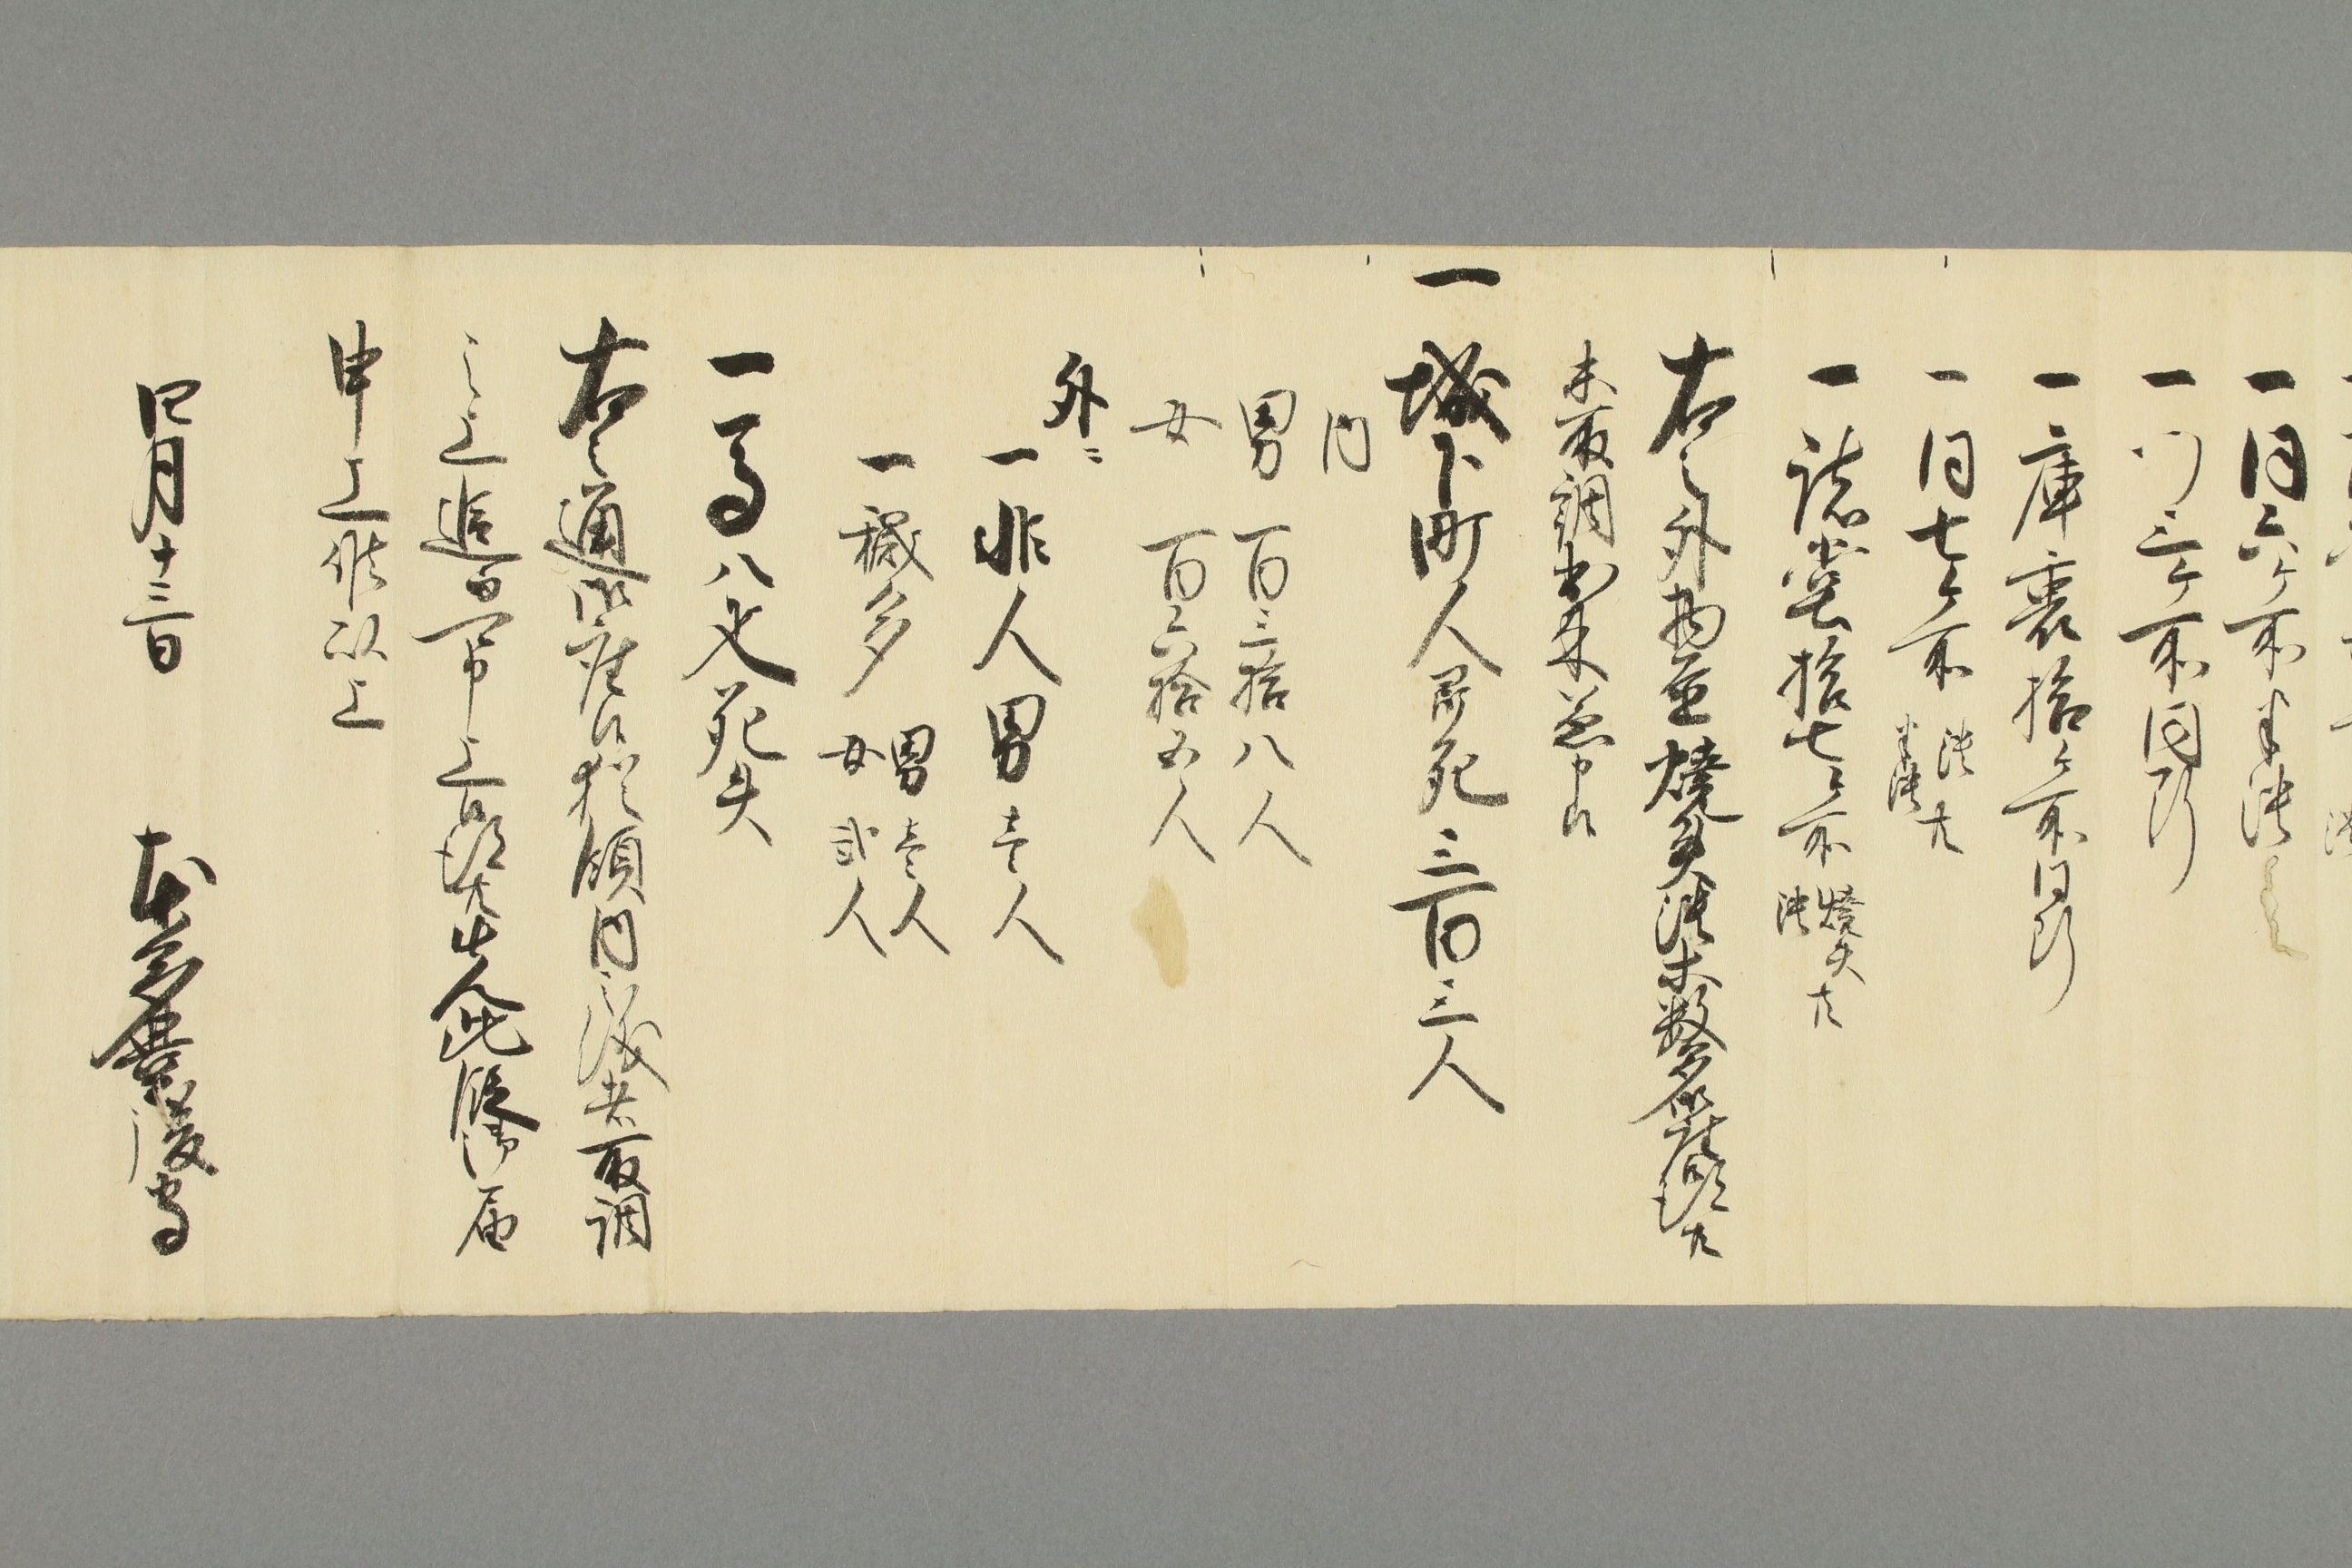 一同六ヶ所半潰
一門三ヶ所同断
一庫裏拾ヶ所同断
一同七ヶ所 潰 半潰 共
一諸堂拾七ヶ所 焼失 潰 共
右之外物置焼失潰等数多御座候得共
未取調出来兼申候
一城下町人即死三百三人
内
男 百三拾八人
女 百六拾五人
外ニ
一非人男壱人
一穢多 男壱人 女弐人
一馬八疋死失
右之通御座候猶領内之儀者取調
之上追而可申上候得共先此段御届
申上候以上
四月十三日 本多豊後守